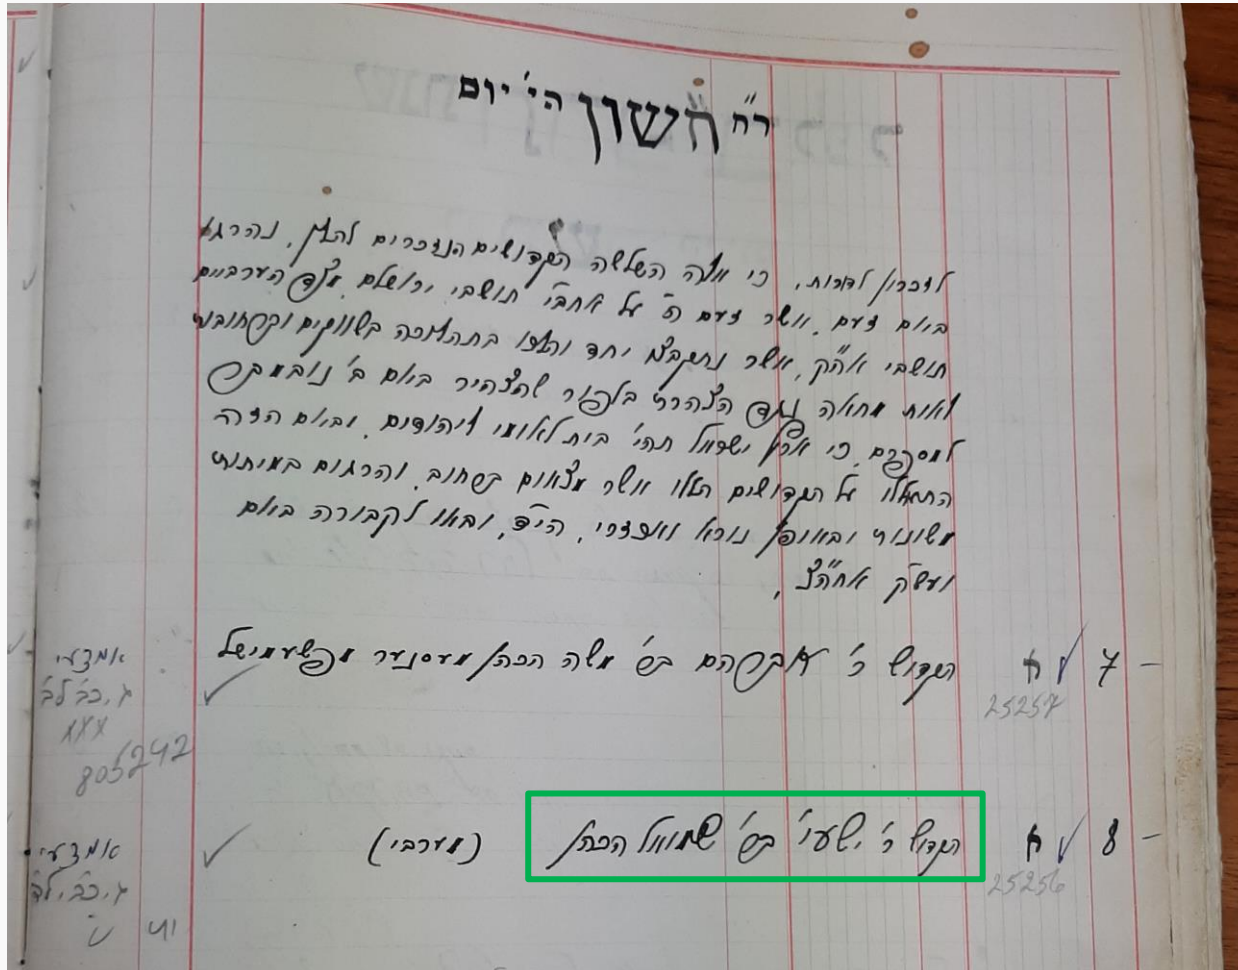 ר"ח חשון הי' יום
לזכרון לדורות, כי אלה השלשה הקדושים הנזכרים להלן, נהרגו
ביום זעם, אשר זעם ה' על אחב"י תושבי ירושלם, מצד הערביים
תושבי אה"ק, אשר נתקבצו יחד והלכו בתהלוכה בשווקים וברחובות
לאות מחאה נגד הצהרת בלפור שהצהיר ביום ב' נובמבר
למספרם, כי ארץ ישראל תהי' בית לאומי ליהודים, וביום הזה
התנפלו על הקדושים האלו אשר מצאום ברחוב, והרגום במיתות
משונות ובאופן נורא ואכזרי, הי"ד, ובאו לקבורה ביום
ועש"ק אחה"צ,
7 ח הקדוש ר' אברהם בר' משה הכהן מעסנער מפשעמישל
25257
אמצעי
ג, כב' לב'
805242
8 ח הקדוש ר' ישעי' בר' שמואל הכהן (מערבי)
25256
אמצעי
ג, כב', לד'